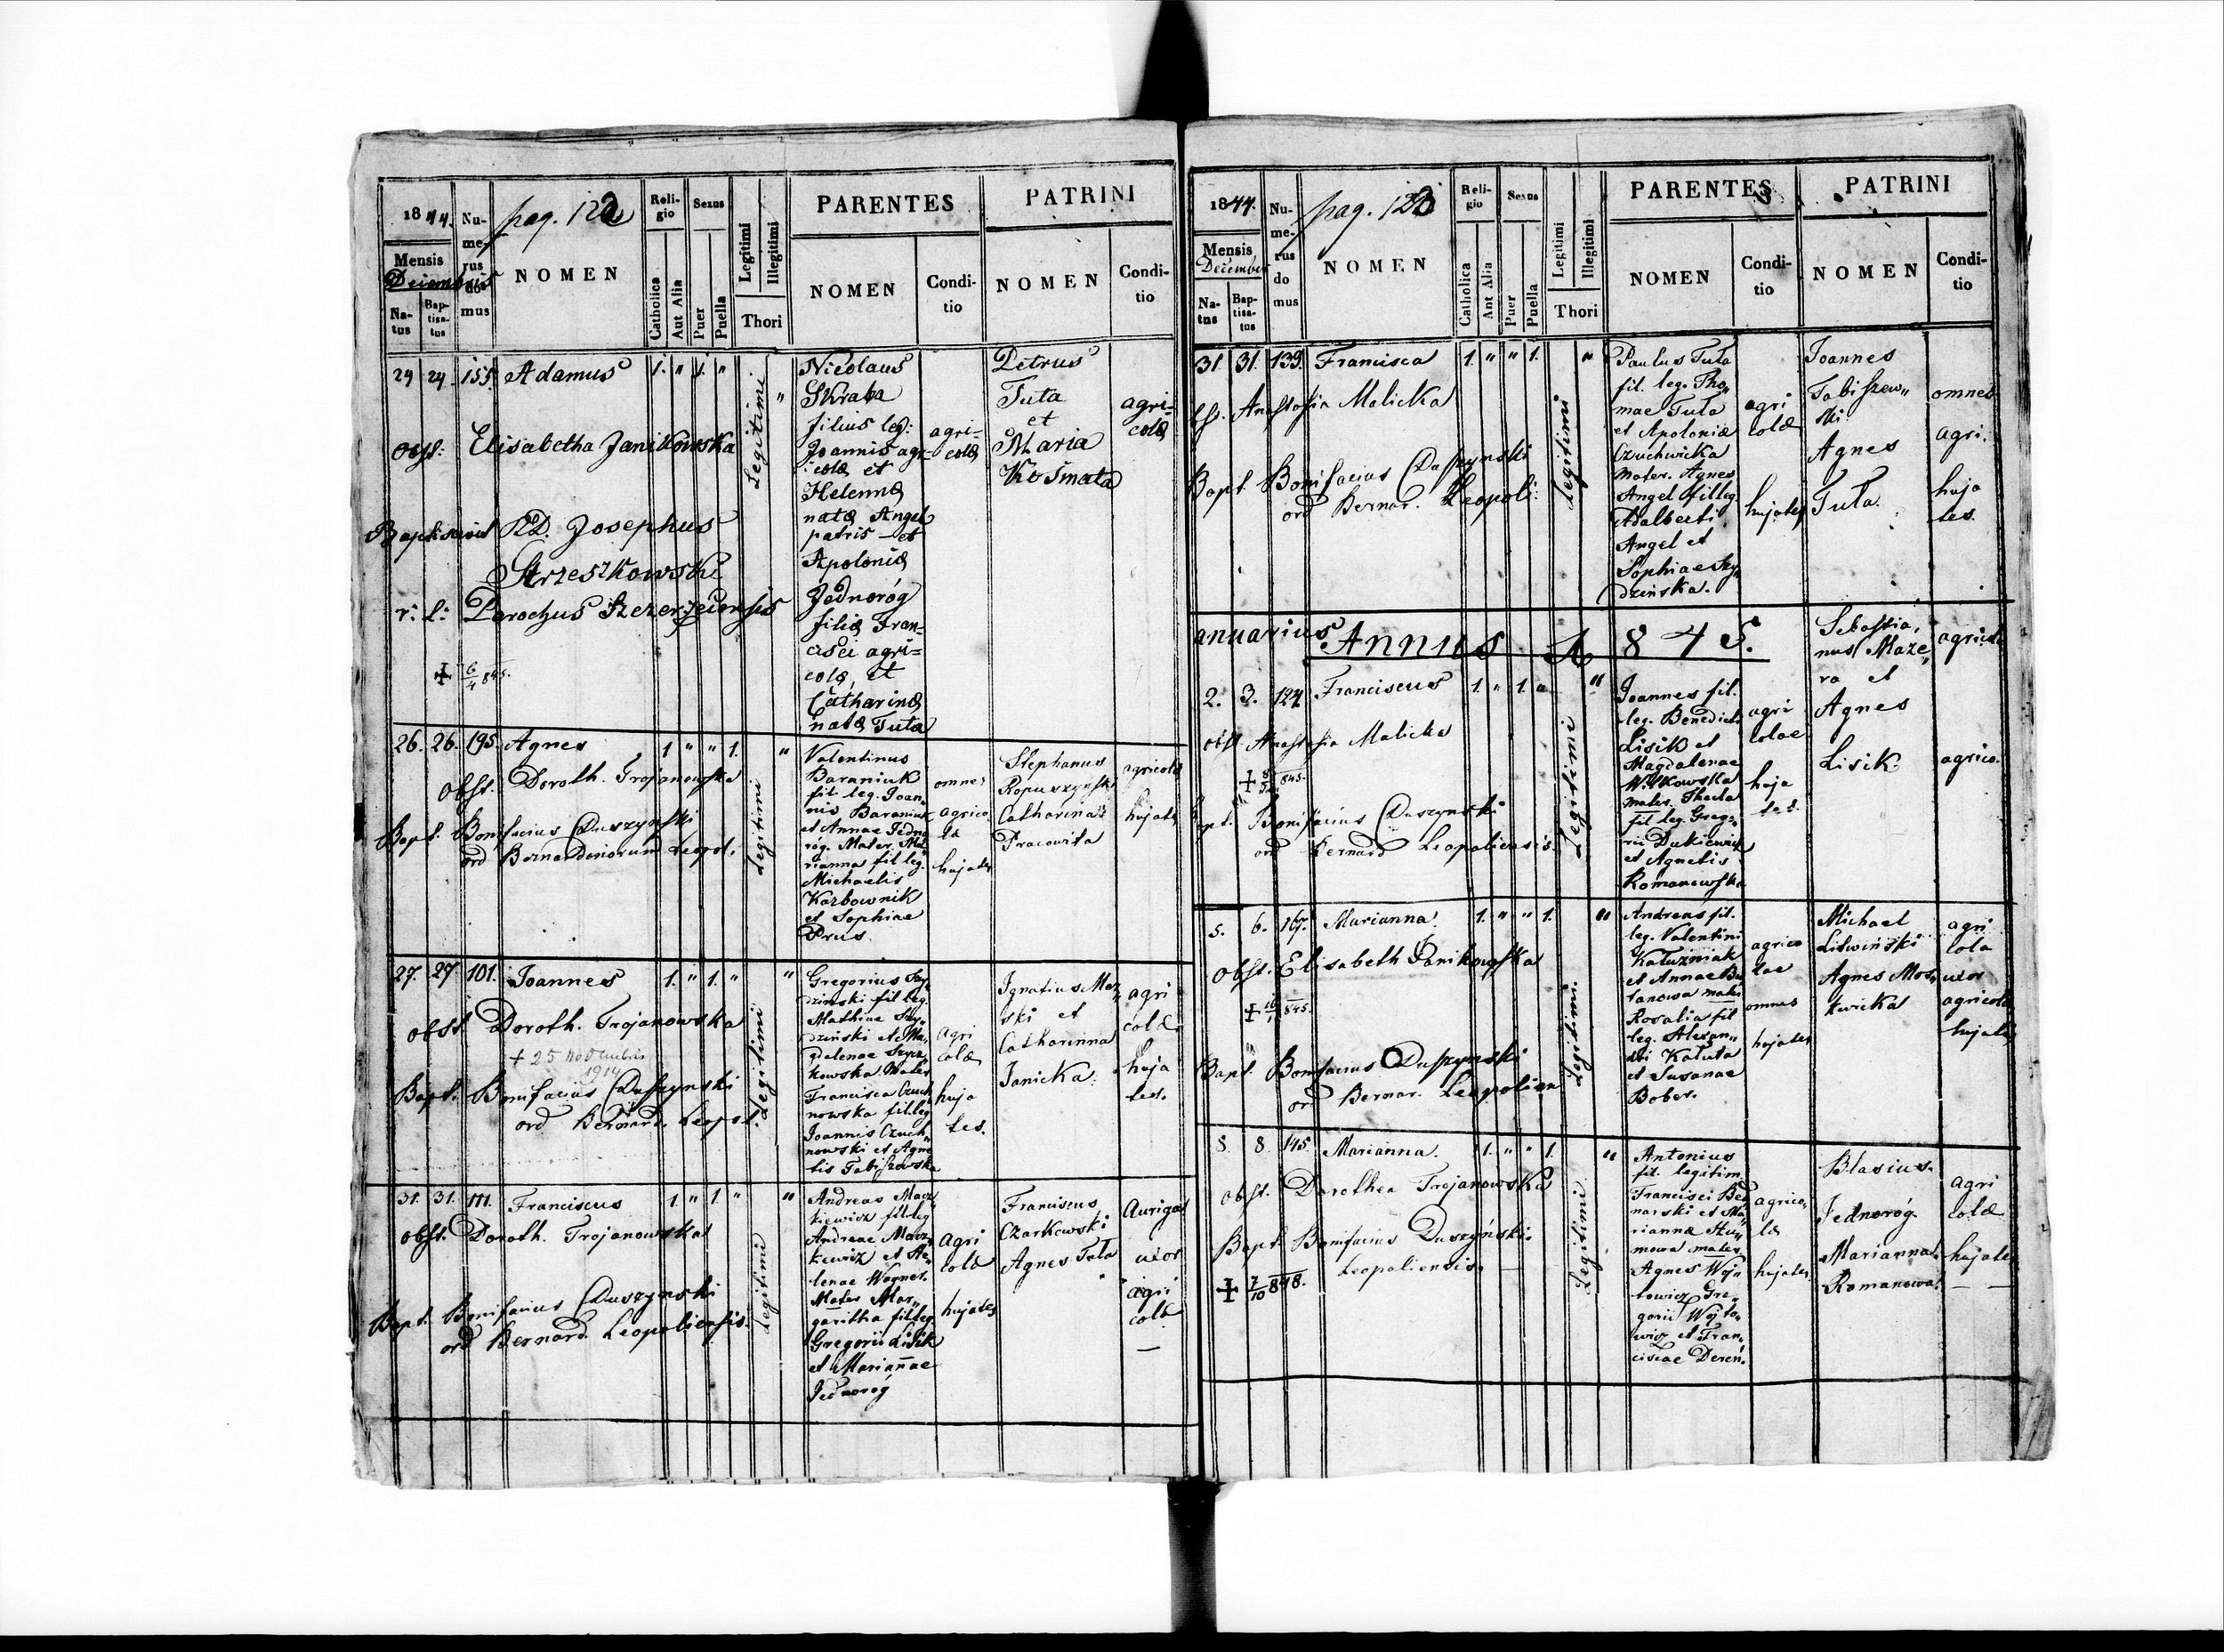 1844.
Mensis
Decembris
Na-
tus
Bap-
tisa-
tus
Nu-
me-
rus
do-
mus
pag. 122
NOMEN
Reli-
gio
Catholica
Aut Alia
Sexus
Puer
Puella
Legitimi
Illegitimi
Thori
PARENTES
NOMEN
Condi-
tio
PATRINI
NOMEN
Condi-
tio
24 24. 155 Adamus 1. " 1. "
Obst: Elisabetha Janikowska
Baptisavit RD. Josephus
Strzeszkowski
r: l: Parochus Szczerzecensis
+ 6/4 845.
Legitimi "
Nicolaus
Skraba
filius leg:
Joannis agri-
colæ et
Helennæ
natæ Angel
patris – et
Apoloniæ
Jednoróg
filiæ Fran-
cisci agri=
colæ, et
Catharinæ
natæ Tuta
agri-
colæ
Petrus
Tuta
et
Maria
Kośmata
agri-
colæ
26. 26. 195 Agnes 1 " " 1.
obst. Doroth. Trojanowska
Bapt. Bonifacius Duszynski
ord Bernardinorum Leopol.
Legitimi "
Valentinus
Baraniuk
fil. leg. Joan,,
nis Baraniuk
et Annae Jedno
róg. Mater. Ma
rianna fil leg.
Michaelis
Karbownik
et Sophiae
Prus.
omnes
agrico
læ
hujates
Stephanus
Ropuszynski
Catharina
Pracowita
agricolæ
hujates
27. 27 101. Joannes 1. " 1. "
obst. Doroth. Trojanowska
+ 25 Novembris
1914
Bapt. Bonifacius Duszynski
ord Bernard. Leopol.
Legitimi "
Gregorius Szy,,
dzinski fil leg.
Mathiae Szy,,
dzinski et Ma,,
gdalenae Szycz,,
kowska. Mater
Francisca Czuch
nowska fil leg
Joannis Czuch,,
nowski et Agne
tis Tabiszewska
agri
colæ
huja
tes.
Ignatius Maz,,
ski et
Catharinna
Janicka.
agri
colæ
huja
tes.
31. 31. 111. Franciscus 1. " 1. "
obst. Doroth. Trojanowska
Bapt. Bonifacius Duszynski
ord Bernard. Leopoliensis.
Legitimi "
Andreas Macz,,
kiewicz fil leg
Andreae Macz,,
kewicz et He,,
lenae Wagner.
Mater Mar,,
garitha fil leg
Gregorii Lisik
et Mariannae
Jednoróg
agri
colæ
hujates
Franciscus
Czarkowski
Agnes Tuta
Auriga
uxor
agri
colæ
—
1844.
Mensis
December
Na-
tus
Bap-
tisa-
tus
Nu-
me-
rus
do
mus
pag. 123
NOMEN
Reli-
gio
Catholica
Aut Alia
Sexus
Puer
Puella
Legitimi
Illegitimi
Thori
PARENTES
NOMEN
Condi-
tio
PATRINI
NOMEN
Condi-
tio
31. 31. 139. Francisca 1. " " 1.
Obst. Anastasia Malicka
Bapt Bonifacius Duszynski
ord Bernar. Leopoli.
Legitimi "
Paulus Tuta
fil. leg. Tho,,
mae Tuta
et Apoloniæ
Czuchwicka
Mater. Agnes
Angel fil leg.
Adalberti
Angel et
Sophiae Szy,,
dzinska.
agri
colæ
hujates
Joannes
Tabiszew,,
ski.
Agnes
Tuta.
omnes
agri.
huja
tes.
anuarius Annus 1845.
2. 3. 124. Franciscus 1. " 1. "
obst Anastasia Malicka
845.
Bapt. Bonifacius Duszynski
ord Bernard Leopoliensis.
Legitimi "
Joannes fil.
leg. Benedicti
Lisik et
Magdalenae
Witkowska
mater. Thecla
fil leg. Grego,,
rii Dukiewicz
et Agnetis
Romanowska
agri
colae
huja
tes.
Sebastia,,
nus Maze,,
ra et
Agnes
Lisik
agricola
agrico.
5. 6. 167. Marianna. 1. " " 1.
Obst. Elisabeth Janikowska
845.
Bapt. Bonifacius Duszynski
ord Bernar. Leopolien
Legitimi. "
Andreas fil.
leg. Valentini
Katuzniak
et Annae Bu
tanowa mater
Rosalia fil
leg. Alexan,,
dri Katuta
et Susanae
Bober.
agrico
lae
omnes
hujates
Michael
Litwiński
Agnes Mos,,
kwicka
agri
cola
uxor
agricolæ
hujates
8 8 145. Marianna. 1. " " 1.
obst. Dorothea Trojanowska
Bapt. Bonifacius Duszyński
Leopoliensis. —
+ 7/10 848.
Legitimi "
Antonius
fil. legitim
Francisci Bed
narski et Ma,,
riannæ Stu,,
mowa mater
Agnes Woj,,
towicz Gre,,
gorii Wojto,,
wicz et Fran,,
ciscae Dereń.
agrico,,
læ
hujates
Blasius
Jednoróg.
Marianna
Romanowa.
agri
colæ
hujates
— —